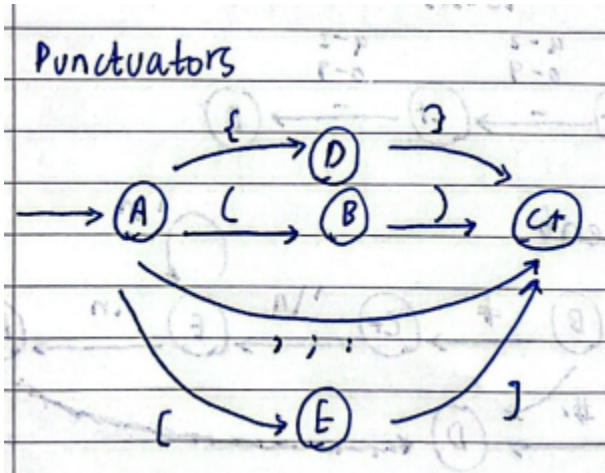 Punctuators
{ }
D
A ( B ) Cf
, ; :
[ E ]